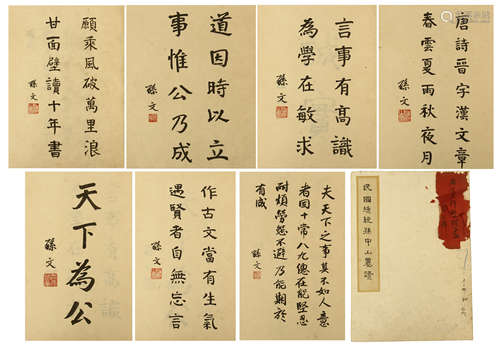 願乘風破萬里浪
甘面壁讀十年書
孫文
道因時以立
事惟公乃成
孫文
言事有高識
為學在敏求
孫文
唐詩晉字漢文章
春雲夏雨秋夜月
孫文
天下為公
孫文
作古文當有生氣
遇賢者自無忘言
孫文
夫天下之事莫不如人意
者固十常八九總在能堅忍
耐煩勞怨不避乃能期於
有成
孫文
民國總統孫中山墨蹟